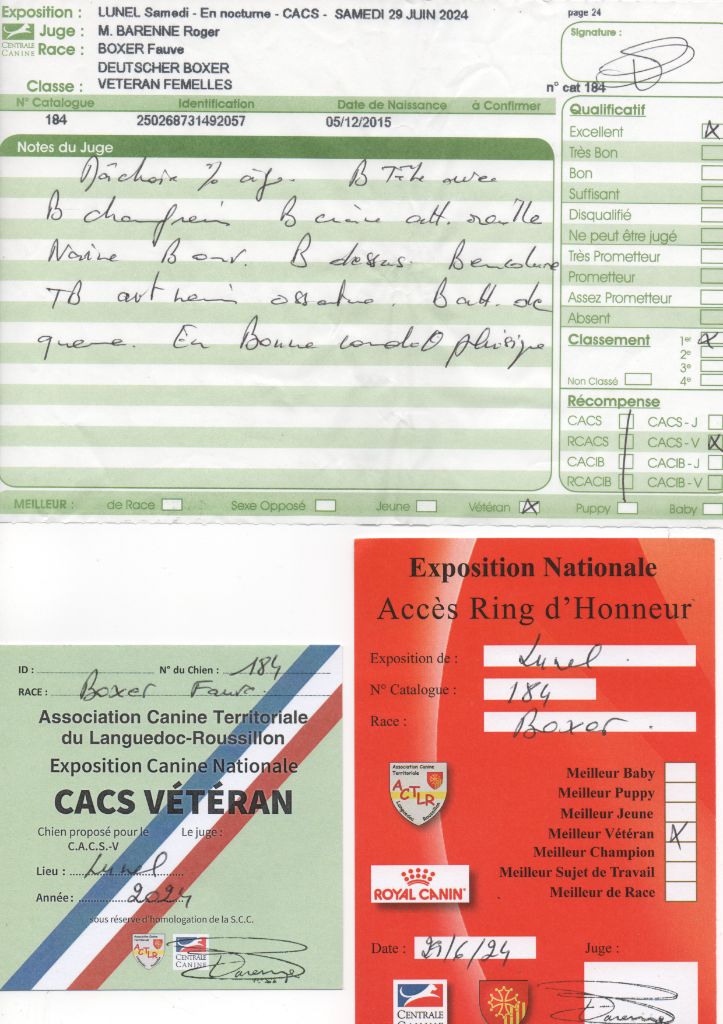 Exposition : LUNEL Samedi - En nocturne - CACS - SAMEDI 29 JUIN 2024
page 24
CENTRALE CANINE
Juge : M. BARENNE Roger
Signature :
Race : BOXER Fauve
DEUTSCHER BOXER
Classe : VETERAN FEMELLES
n° cat 184
N° Catalogue Identification Date de Naissance à Confirmer
184 250268731492057 05/12/2015
Notes du Juge
Mâchoire % âge. B Tête avec
B chanfrein B crâne att. oreille
Narine B ouv. B dessus. B encolure
TB avt main ossature. B att. de
queue. En Bonne condit° phisique
Qualificatif
Excellent X
Très Bon
Bon
Suffisant
Disqualifié
Ne peut être jugé
Très Prometteur
Prometteur
Assez Prometteur
Absent
Classement 1er X
2e
3e
Non Classé 4e
Récompense
CACS CACS - J
RCACS CACS - V X
CACIB CACIB - J
RCACIB CACIB - V
MEILLEUR : de Race Sexe Opposé Jeune Vétéran X Puppy Baby
ID : N° du Chien : 184
RACE : Boxer Fauve
Association Canine Territoriale
du Languedoc-Roussillon
Exposition Canine Nationale
CACS VÉTÉRAN
Chien proposé pour le Le juge :
C.A.C.S.-V
Lieu : Lunel
Année : 2024
sous réserve d'homologation de la S.C.C.
ACTLR
CENTRALE CANINE
Barenne
Exposition Nationale
Accès Ring d'Honneur
Exposition de : Lunel
N° Catalogue : 184
Race : Boxer
Association Canine
Territoriale
ACTLR
Languedoc Roussillon
Meilleur Baby
Meilleur Puppy
Meilleur Jeune
Meilleur Vétéran X
Meilleur Champion
Meilleur Sujet de Travail
Meilleur de Race
ROYAL CANIN
Date : 29/6/24
Juge :
CENTRALE
Barenne